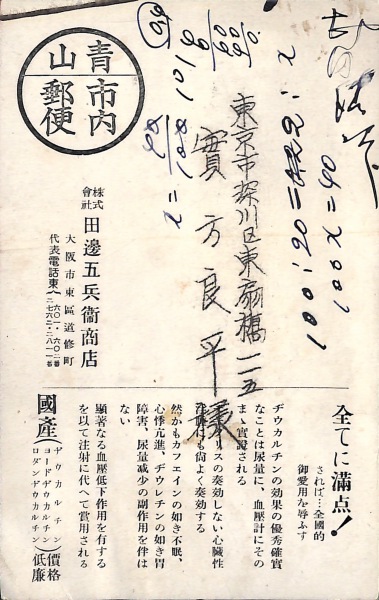 100:20=442:x
100x=40
東京市深川区東扇橋二ノ五
實方良平様
青山
市内郵便
株式會社 田邊五兵衞商店
大阪市東區道修町
代表電話東
全てに満点!
されば…全國的
御愛用を辱ふす
ヂウカルチンの効果の優秀確實
なことは尿量に、血壓計にその
まゝ實證される
スの奏効しない心臟性
にも尙よく奏効する
然かもカフェインの如き不眠、
心悸亢進、ヂウレチンの如き胃
障害、尿量减少の副作用を伴は
ない
顯著なる血壓低下作用を有する
を以て注射に代へて賞用される
國產
ヂウカルチン
ヨードヂウカルチン
ロダンヂウカルチン
價格低廉